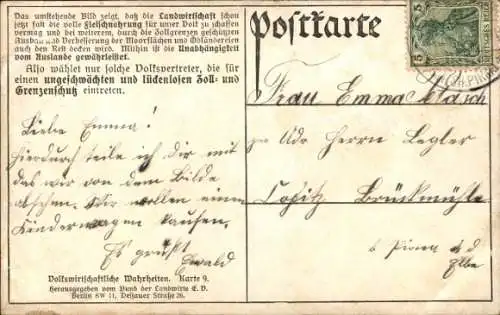 Das umstehende Bild zeigt, daß die Landwirtschaft schon
jetzt fast die volle Fleischnahrung für unser Volk zu schaffen
vermag und bei weiterem, durch die Zollgrenzen geschützten
Ausbau und Verbesserung der Moorflächen und Ödländereien
auch den Rest decken wird. Mithin ist die Unabhängigkeit
vom Auslande gewährleistet.
Also wählet nur solche Volksvertreter, die für
einen ungeschwächten und lückenlosen Zoll- und
Grenzenschutz eintreten.
Liebe Emma!
Hierdurch teile ich Dir mit
das wir von dem Bilde
absehen. Wir wollen einen
Kinderwagen kaufen.
Es grüßt
Ewald
Volkswirtschaftliche Wahrheiten. Karte 9.
Herausgegeben vom Bund der Landwirte E.V.
Berlin SW 11, Dessauer Straße 26.
Postkarte
5
5
Frau Emma
Adr Herrn Legler
Copitz Brückmühle
b Pirna a d
Elbe